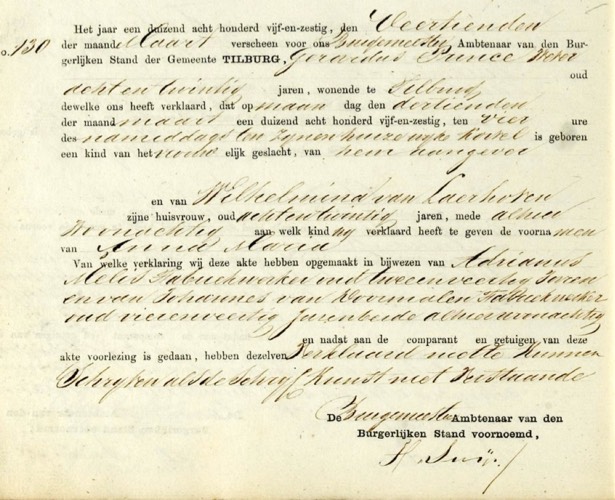 Het jaar een duizend acht honderd vijf-en-zestig, den Veertienden
No. 130 der maand Maart verscheen voor ons Burgemeester Ambtenaar van den Bur-
gerlijken Stand der Gemeente TILBURG, Gerardus Prince Wever
oud
acht en twintig jaren, wonende te Tilburg
dewelke ons heeft verklaard, dat op maan dag den dertienden
der maand maart een duizend acht honderd vijf-en-zestig, ten vier ure
des namiddags ten zynen huize wyk Korvel is geboren
een kind van het vrouwelijk geslacht, van hem aangever
en van Wilhelmina van Laerhoven
zijne huisvrouw, oud acht en twintig jaren, mede alhier
woonachtig aan welk kind hy verklaard heeft te geven de voornamen
van Anna Maria
Van welke verklaring wij deze akte hebben opgemaakt in bijwezen van Adrianus
Melis Fabriekwerker oud twee en veertig Jaren
en van Johannes van Roosmalen Fabriekwerker
oud vier en veertig Jaren beide alhier woonachtig
en nadat aan de comparant en getuigen van deze
akte voorlezing is gedaan, hebben dezelven Verklaard niet te kunnen
Schryven als de Schryf Kunst niet Verstaande
De Burgemeester Ambtenaar van den
Burgerlijken Stand voornoemd,